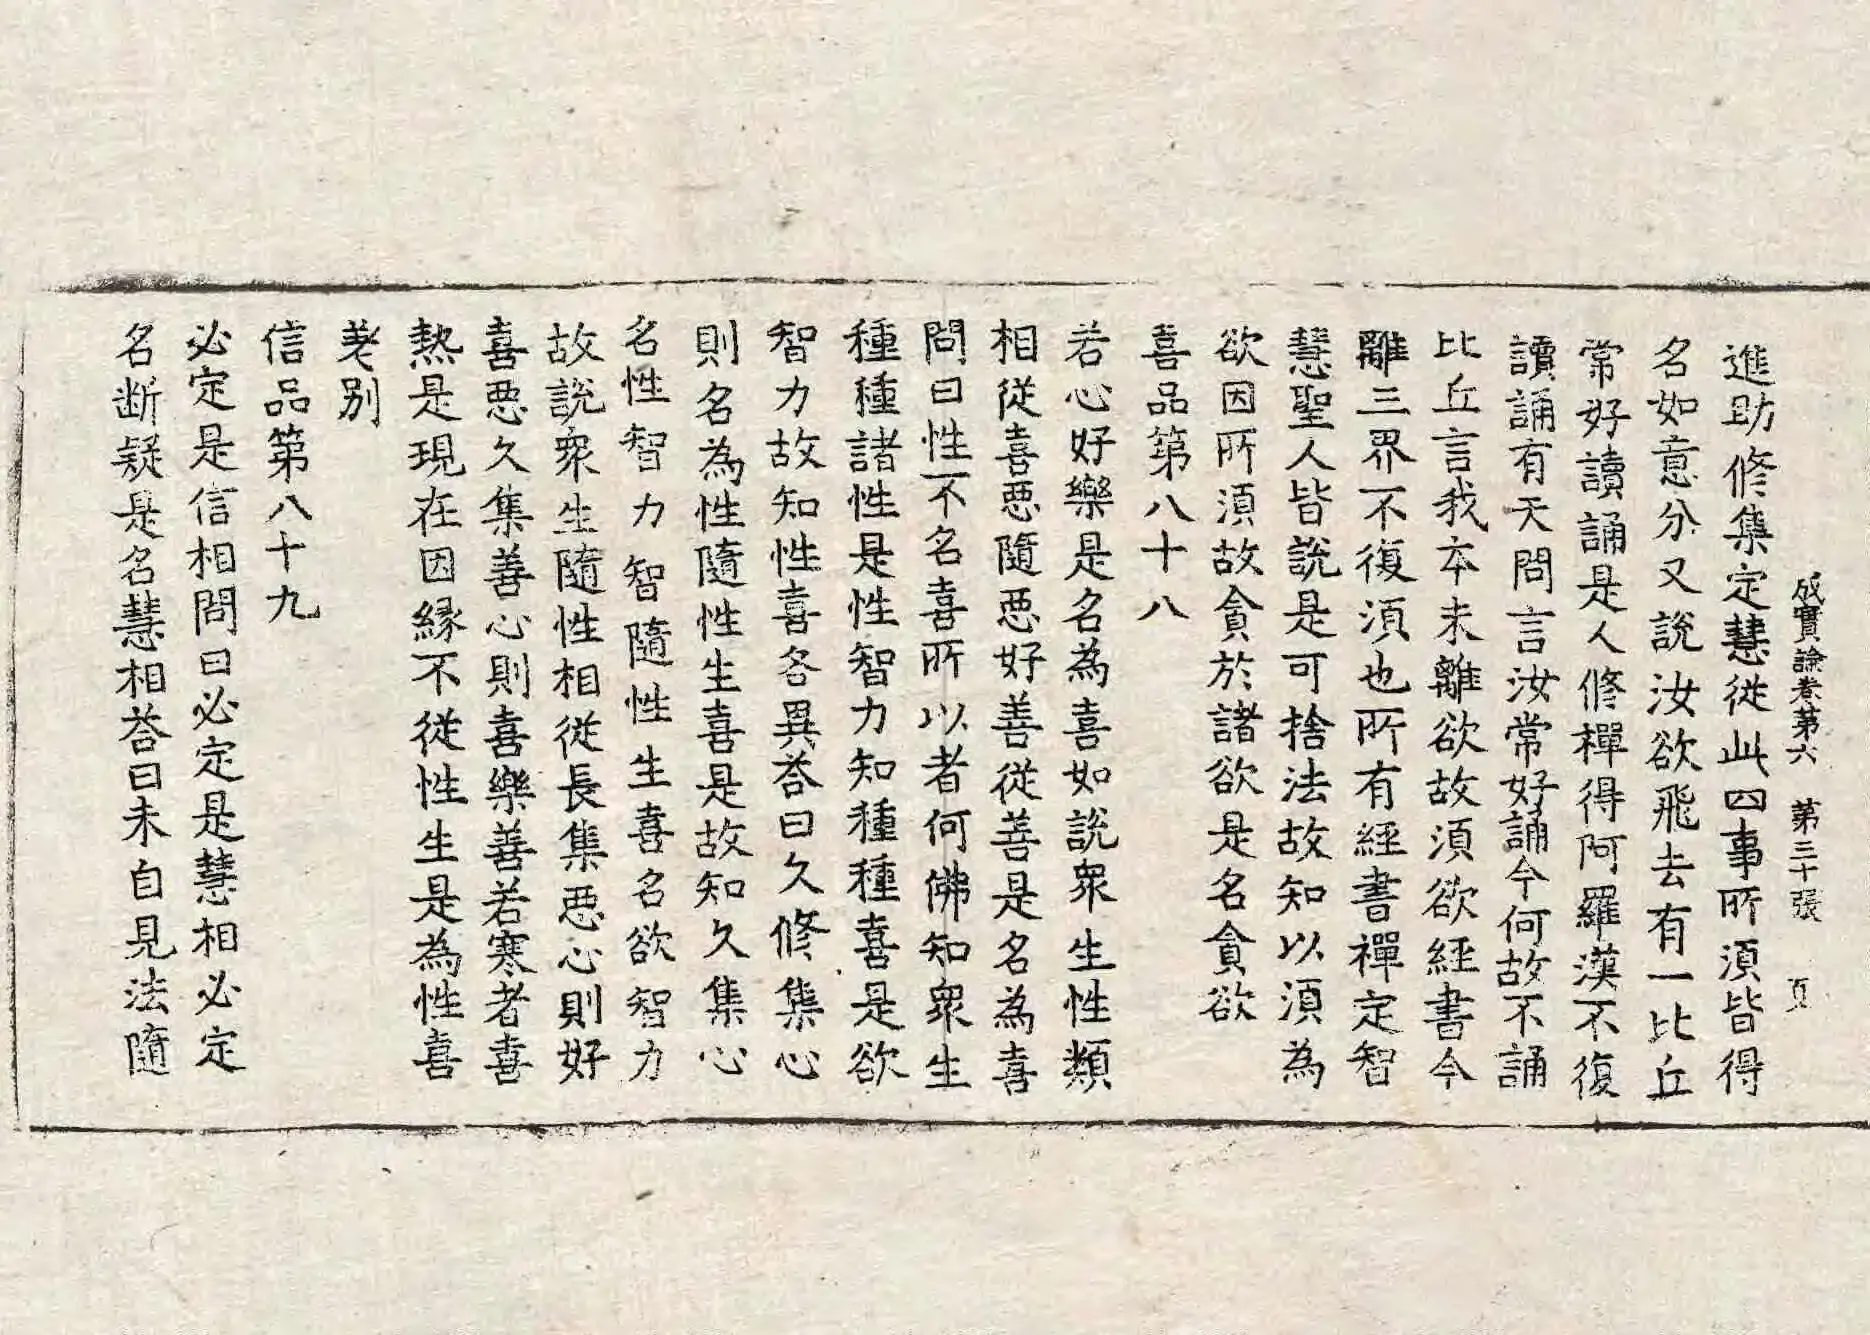 成實論卷第六　第三十張　頁
進助修集定慧從此四事所須皆得
名如意分又說汝欲飛去有一比丘
常好讀誦是人修禪得阿羅漢不復
讀誦有天問言汝常好誦今何故不誦
比丘言我本未離欲故須欲經書今
離三界不復須也所有經書禪定智
慧聖人皆說是可捨法故知以須為
欲因所須故貪於諸欲是名貪欲
喜品第八十八
若心好樂是名為喜如說眾生性類
相從喜惡隨惡好善從善是名為喜
問曰性不名喜所以者何佛知眾生
種種諸性是性智力知種種喜是欲
智力故知性喜各異荅曰久修集心
則名為性隨性生喜是故知久集心
名性智力智隨性生喜名欲智力
故說眾生隨性相從長集惡心則好
喜惡久集善心則喜樂善若寒者喜
熱是現在因緣不從性生是為性喜
差別
信品第八十九
必定是信相問曰必定是慧相必定
名斷疑是名慧相荅曰未自見法隨